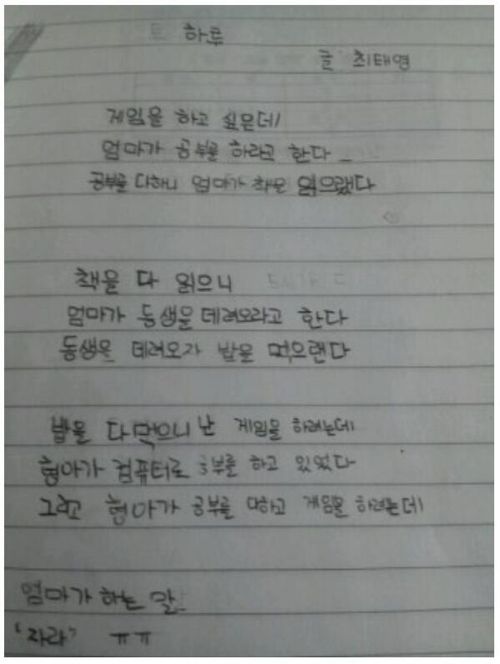 하루
글 최태영
게임을 하고 싶은데
엄마가 공부를 하라고 한다
공부를 다하니 엄마가 책을 읽으랬다
책을 다 읽으니
엄마가 동생을 데려오라고 한다
동생을 데려오자 밥을 먹으랜다
밥을 다먹으니 난 게임을 하려는데
형아가 컴퓨터로 공부를 하고 있었다
그리고 형아가 공부를 다하고 게임을 하려는데
엄마가 하는 말
"자라" ㅠㅠ